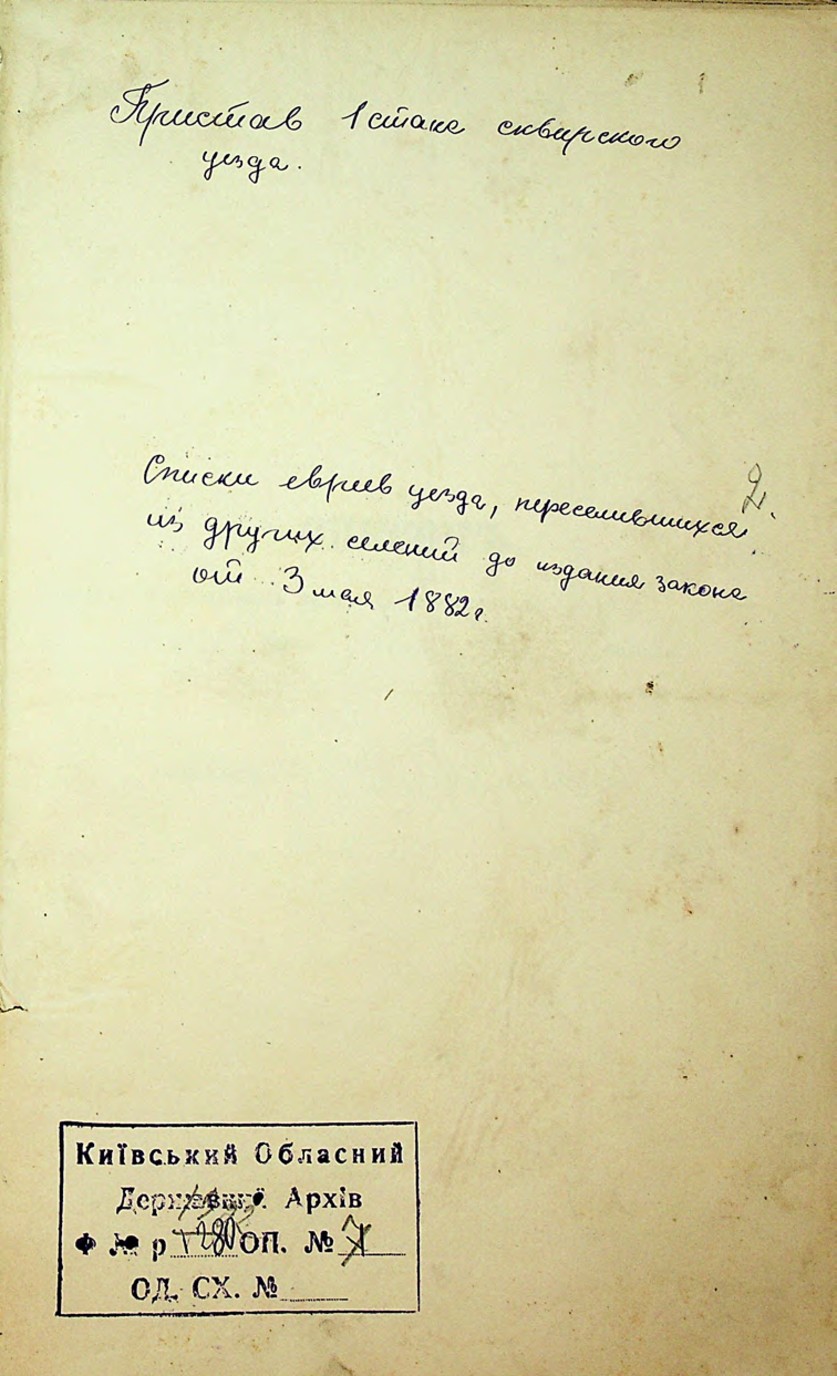 Пристав 1 стана сквирского
уезда.
2.
Списки евреев уезда, переселившихся
из других селений до издания закона
от 3 мая 1882 г.
Київський Обласний
Державний Архів
Ф № р 1280 ОП. №
ОД. СХ. №